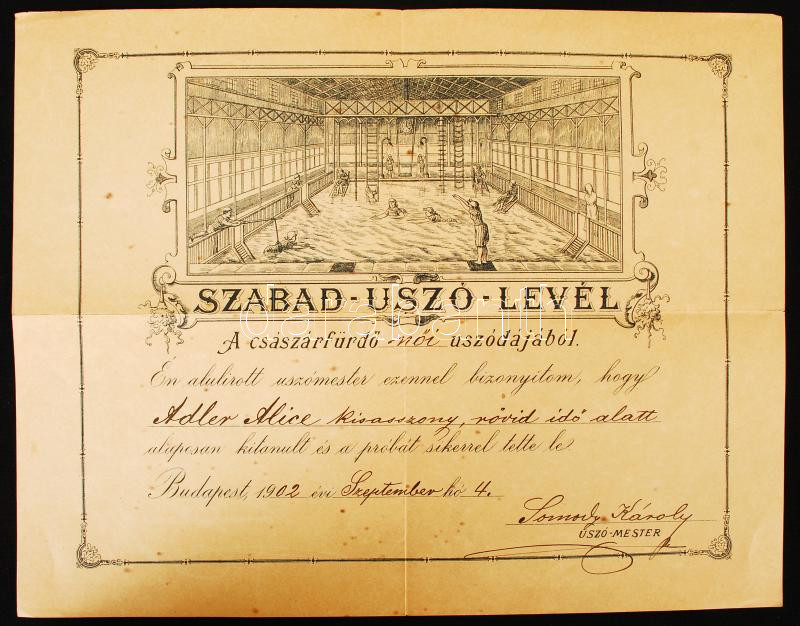 SZABAD-USZÓ-LEVÉL
A császárfürdő női uszódájából.
Én alulirott uszómester ezennel bizonyitom, hogy
Adler Alice kisasszony, rövid idő alatt
alaposan kitanult és a próbát sikerrel tette le
Budapest, 1902 évi Szeptember hó 4.
Somody Károly
ÚSZÓ-MESTER